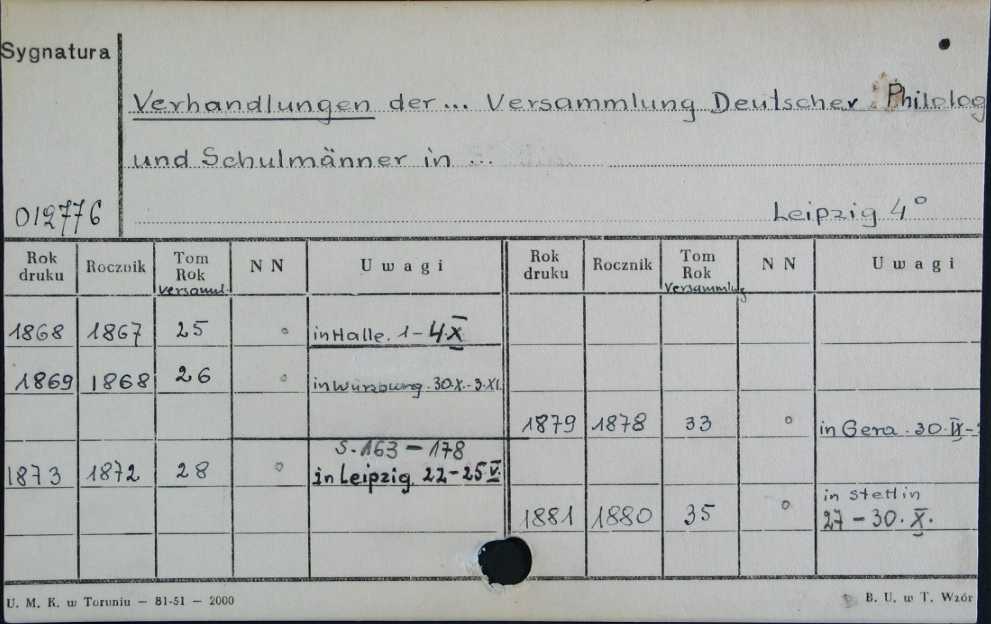 Sygnatura
Verhandlungen der ... Versammlung Deutscher Philolog
und Schulmänner in ...
012776
Leipzig 4°
Rok druku Rocznik Tom Rok versaml. N N Uwagi Rok druku Rocznik Tom Rok Versammlg N N Uwagi
1868 1867 25 ° in Halle. 1-4.X
1869 1868 26 ° in Würzburg. 30.X.-3.XI.
1879 1878 33 ° in Gera. 30.IX-
S. 163 - 178
1873 1872 28 ° in Leipzig. 22-25 V.
in Stettin
1881 1880 35 ° 27-30.X.
U. M. K. w Toruniu — 81-51 — 2000
B. U. w T. Wzór